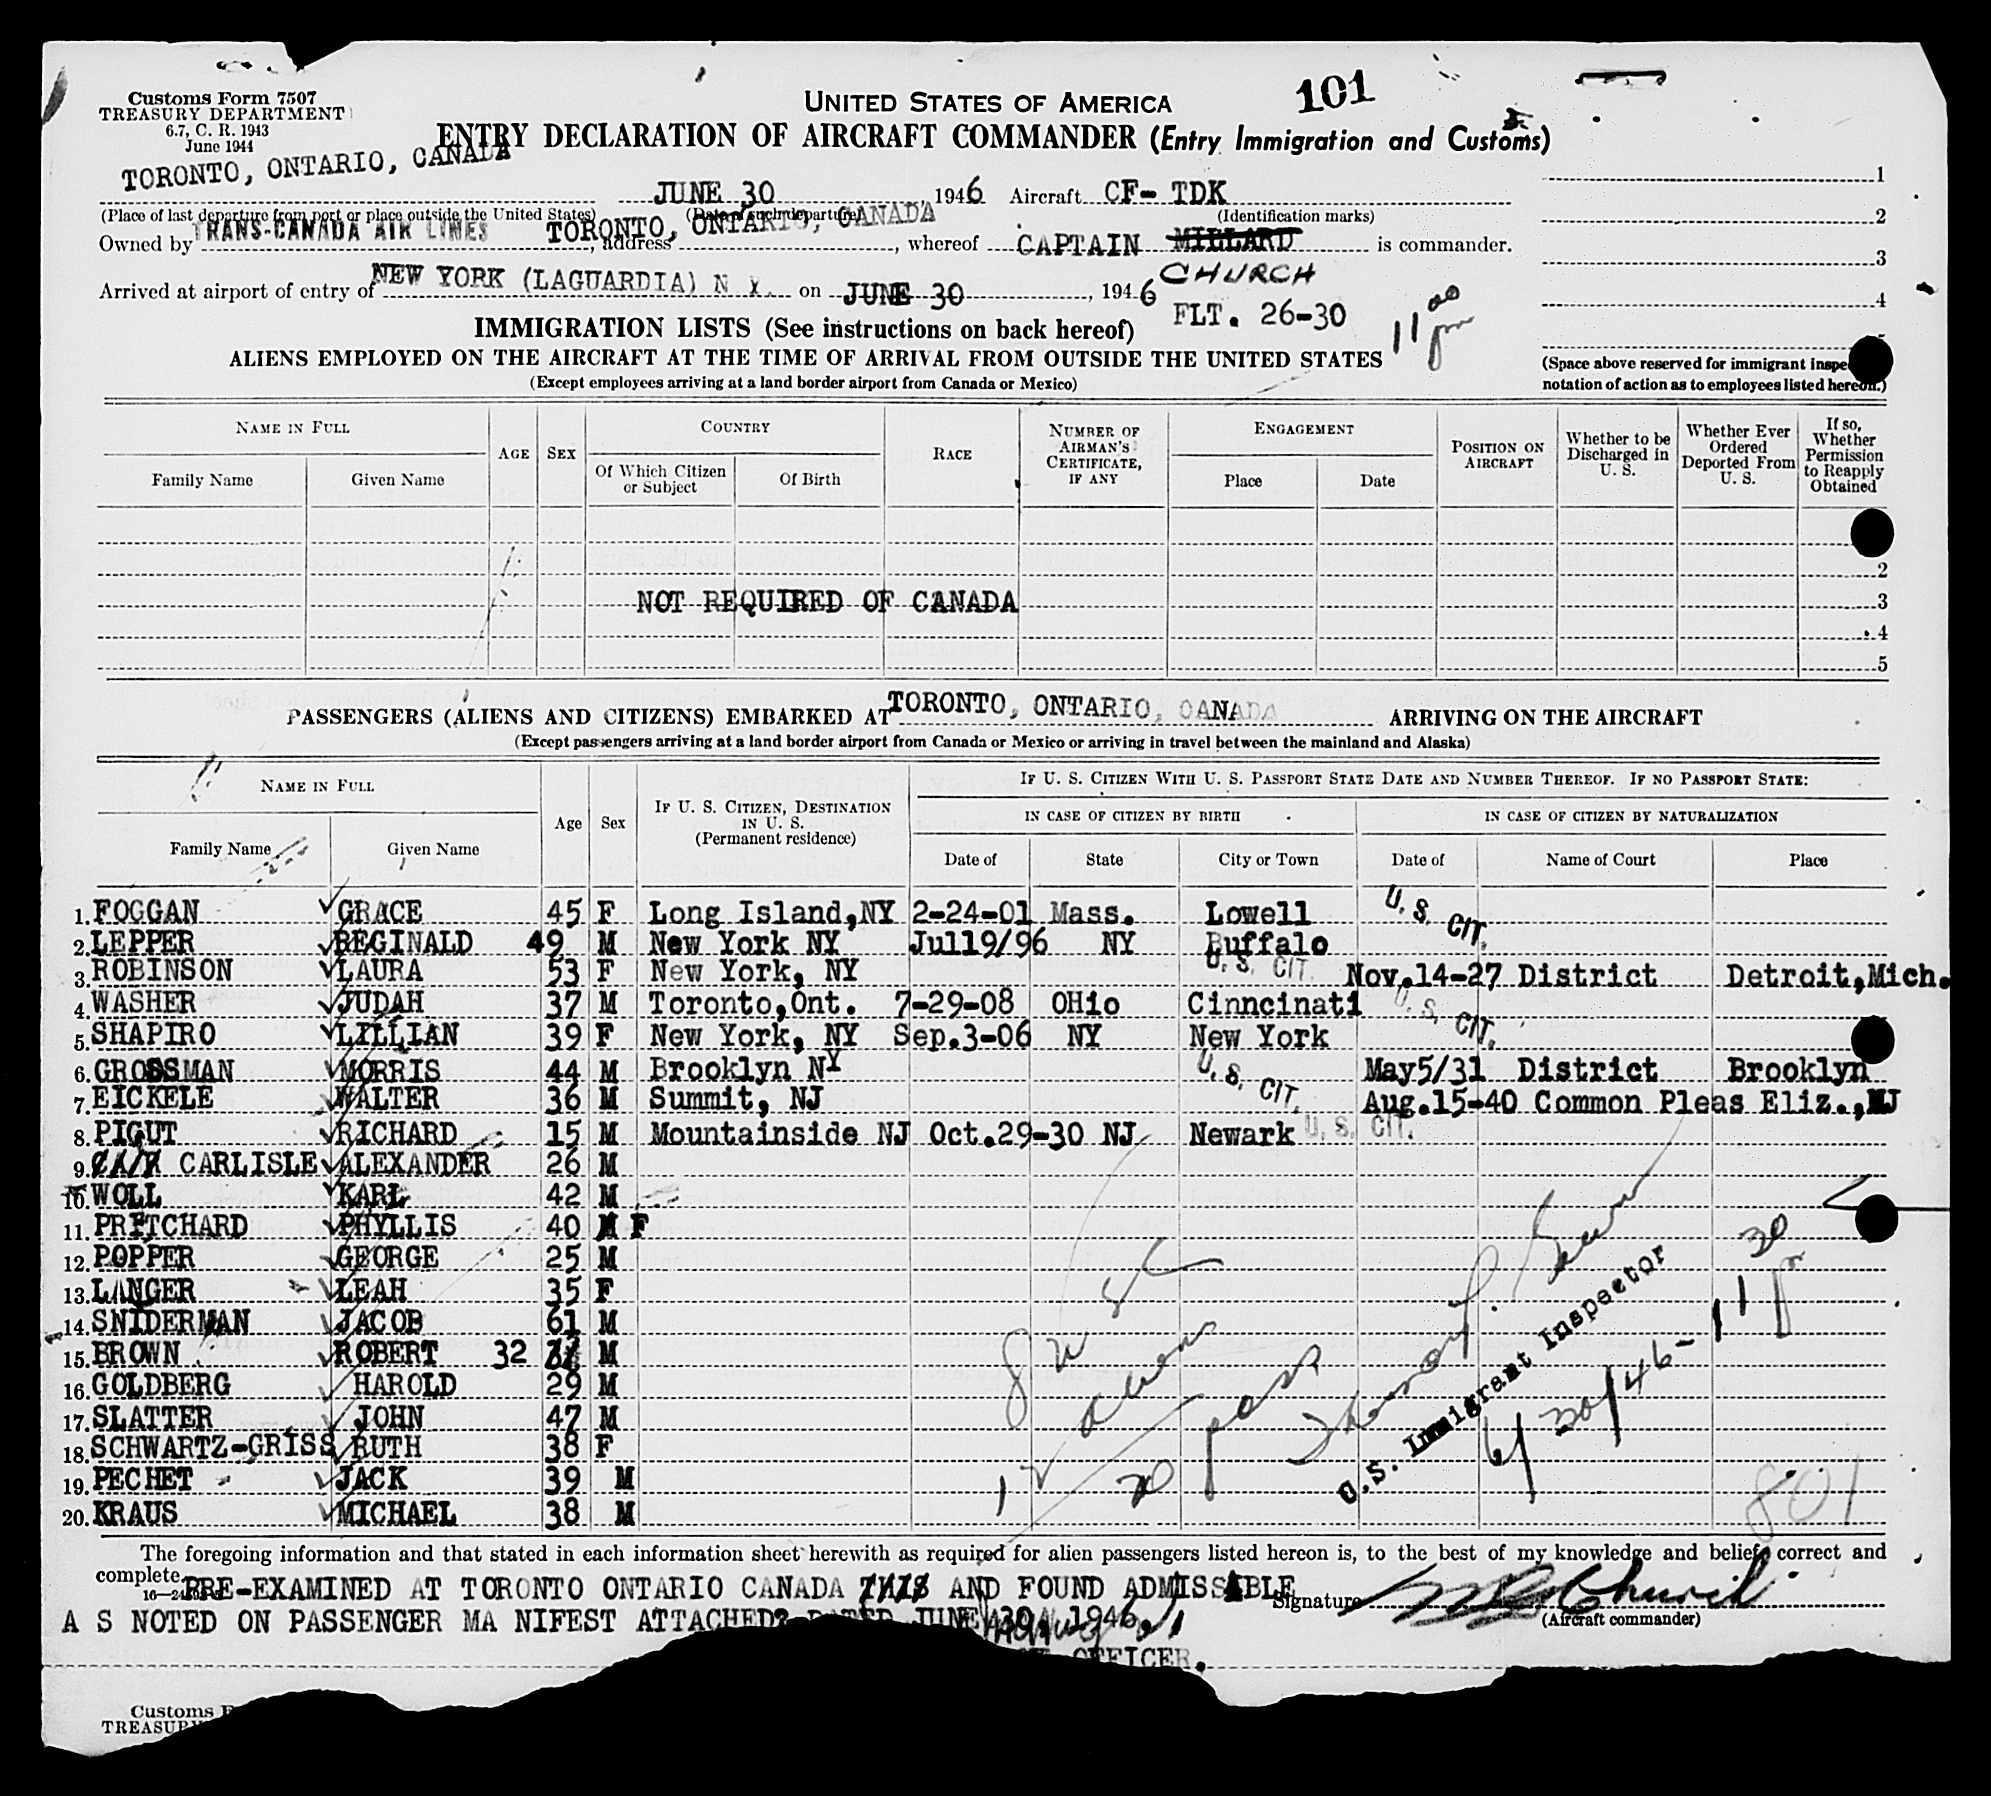 Customs Form 7507
TREASURY DEPARTMENT
6.7, C. R. 1943
June 1944
UNITED STATES OF AMERICA
101
ENTRY DECLARATION OF AIRCRAFT COMMANDER (Entry Immigration and Customs)
TORONTO, ONTARIO, CANADA JUNE 30 1946 Aircraft CF- TDK
(Place of last departure from port or place outside the United States) (Date of such departure) (Identification marks)
Owned by TRANS-CANADA AIR LINES, address TORONTO, ONTARIO, CANADA, whereof CAPTAIN MILLARD is commander.
CHURCH
Arrived at airport of entry of NEW YORK (LAGUARDIA) N Y. on JUNE 30, 1946
FLT. 26-30
11 00 pm
1
2
3
4
5
IMMIGRATION LISTS (See instructions on back hereof)
ALIENS EMPLOYED ON THE AIRCRAFT AT THE TIME OF ARRIVAL FROM OUTSIDE THE UNITED STATES
(Except employees arriving at a land border airport from Canada or Mexico)
(Space above reserved for immigrant inspe
notation of action as to employees listed hereon.)
NAME IN FULL AGE SEX COUNTRY RACE NUMBER OF AIRMAN'S CERTIFICATE, IF ANY ENGAGEMENT POSITION ON AIRCRAFT Whether to be Discharged in U. S. Whether Ever Ordered Deported From U. S. If so, Whether Permission to Reapply Obtained
Family Name Given Name Of Which Citizen or Subject Of Birth Place Date
2
NOT REQUIRED OF CANADA 3
4
5
PASSENGERS (ALIENS AND CITIZENS) EMBARKED AT TORONTO, ONTARIO, CANADA ARRIVING ON THE AIRCRAFT
(Except passengers arriving at a land border airport from Canada or Mexico or arriving in travel between the mainland and Alaska)
NAME IN FULL Age Sex IF U. S. CITIZEN, DESTINATION IN U. S. (Permanent residence) IF U. S. CITIZEN WITH U. S. PASSPORT STATE DATE AND NUMBER THEREOF. IF NO PASSPORT STATE:
IN CASE OF CITIZEN BY BIRTH IN CASE OF CITIZEN BY NATURALIZATION
Family Name Given Name Date of State City or Town Date of Name of Court Place
1. FOGGAN GRACE 45 F Long Island,NY 2-24-01 Mass. Lowell U. S. CIT.
2. LEPPER REGINALD 49 M New York NY Jul19/96 NY Buffalo
3. ROBINSON LAURA 53 F New York, NY U. S. CIT. Nov.14-27 District Detroit,Mich.
4. WASHER JUDAH 37 M Toronto,Ont. 7-29-08 OHio Cinncinati U. S. CIT.
5. SHAPIRO LILLIAN 39 F New York, NY Sep.3-06 NY New York
6. GROSSMAN MORRIS 44 M Brooklyn NY U. S. CIT. May5/31 District Brooklyn
7. EICKELE WALTER 36 M Summit, NJ Aug.15-40 Common Pleas Eliz.,NJ
8. PIGUT RICHARD 15 M Mountainside NJ Oct.29-30 NJ Newark U. S. CIT.
9. CARLISLE ALEXANDER 26 M
10. WOLL KARL 42 M
11. PRITCHARD PHYLLIS 40 M F
12. POPPER GEORGE 25 M
13. LANGER LEAH 35 F
14. SNIDERMAN JACOB 61 M
15. BROWN ROBERT 32 M
16. GOLDBERG HAROLD 29 M
17. SLATTER JOHN 47 M
18. SCHWARTZ-GRISS RUTH 38 F
19. PECHET JACK 39 M
20. KRAUS MICHAEL 38 M
8 usc
12 aliens
20 pass
U.S. Immigrant Inspector
6/30/46- 11 30 p
801
The foregoing information and that stated in each information sheet herewith as required for alien passengers listed hereon is, to the best of my knowledge and belief, correct and
complete.
PRE-EXAMINED AT TORONTO ONTARIO CANADA THIS AND FOUND ADMISSABLE
Signature
(Aircraft commander)
A S NOTED ON PASSENGER MA NIFEST ATTACHED DATED JUNE 30, 1946
OFFICER.
Customs F
TREASURY